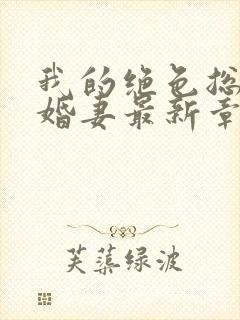 我的绝色总
婚妻最新章
芙蕖绿波